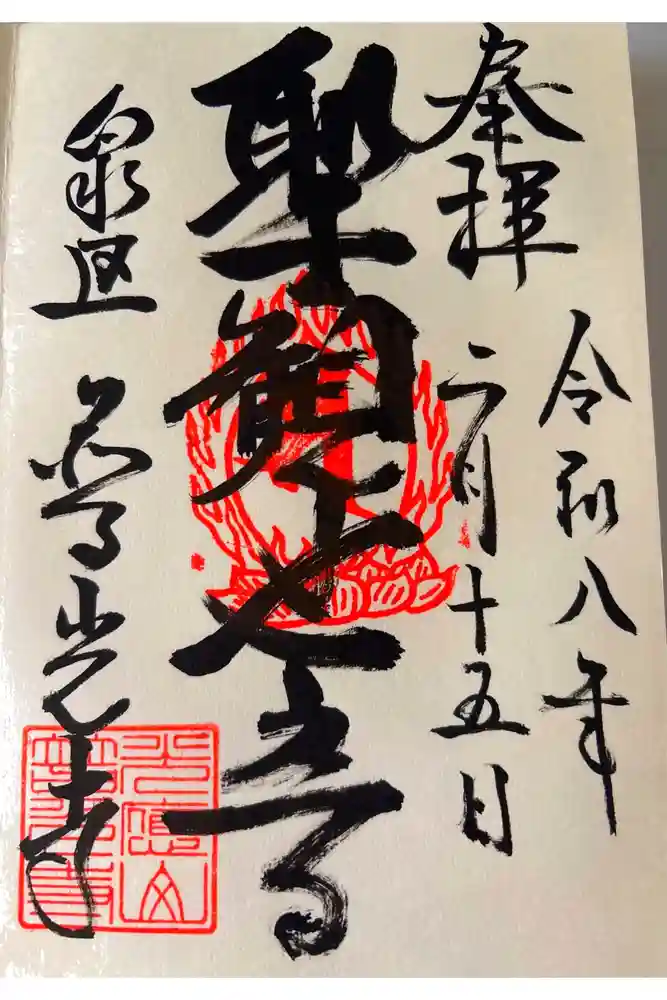 令和八年
奉拝
二月十五日
聖観世音
泉区 普光寺